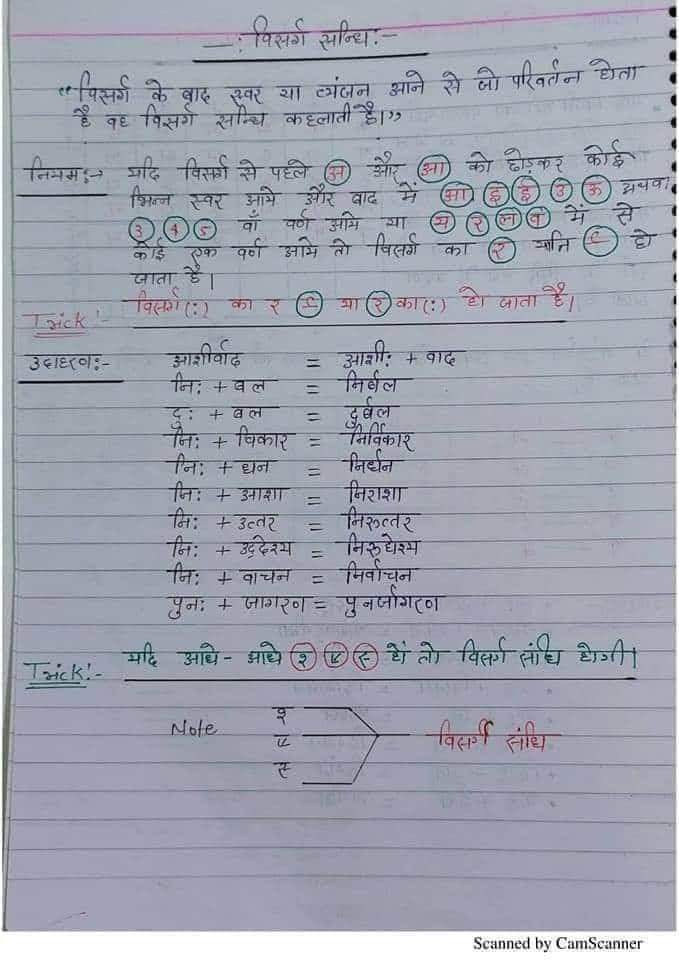 —: विसर्ग सन्धि:-
"विसर्ग के बाद स्वर या व्यंजन आने से जो परिवर्तन होता
है वह विसर्ग सन्धि कहलाती है।"
नियम:→ यदि विसर्ग से पहले अ और आ को छोड़कर कोई
भिन्न स्वर आये और बाद में आ इ ई उ ऊ अथवा
3 4 5 वाँ वर्ण आये या य र ल व में से
कोई एक वर्ण आये तो विसर्ग का र् यानि र्‍ हो
जाता है।
Trick:- विसर्ग(:) का र र्‍ या र् का(:) हो जाता है।
उदाहरण:- आशीर्वाद = आशी: + वाद
नि: + बल = निर्बल
दु: + बल = दुर्बल
नि: + विकार = निर्विकार
नि: + धन = निर्धन
नि: + आशा = निराशा
नि: + उत्तर = निरुत्तर
नि: + उद्देश्य = निरुद्येश्य
नि: + वाचन = निर्वाचन
पुन: + जागरण = पुनर्जागरण
Trick:- यदि आधे-आधे श् ष् स् हों तो विसर्ग संधि होगी।
श्
Note ष् विसर्ग संधि
स्
Scanned by CamScanner